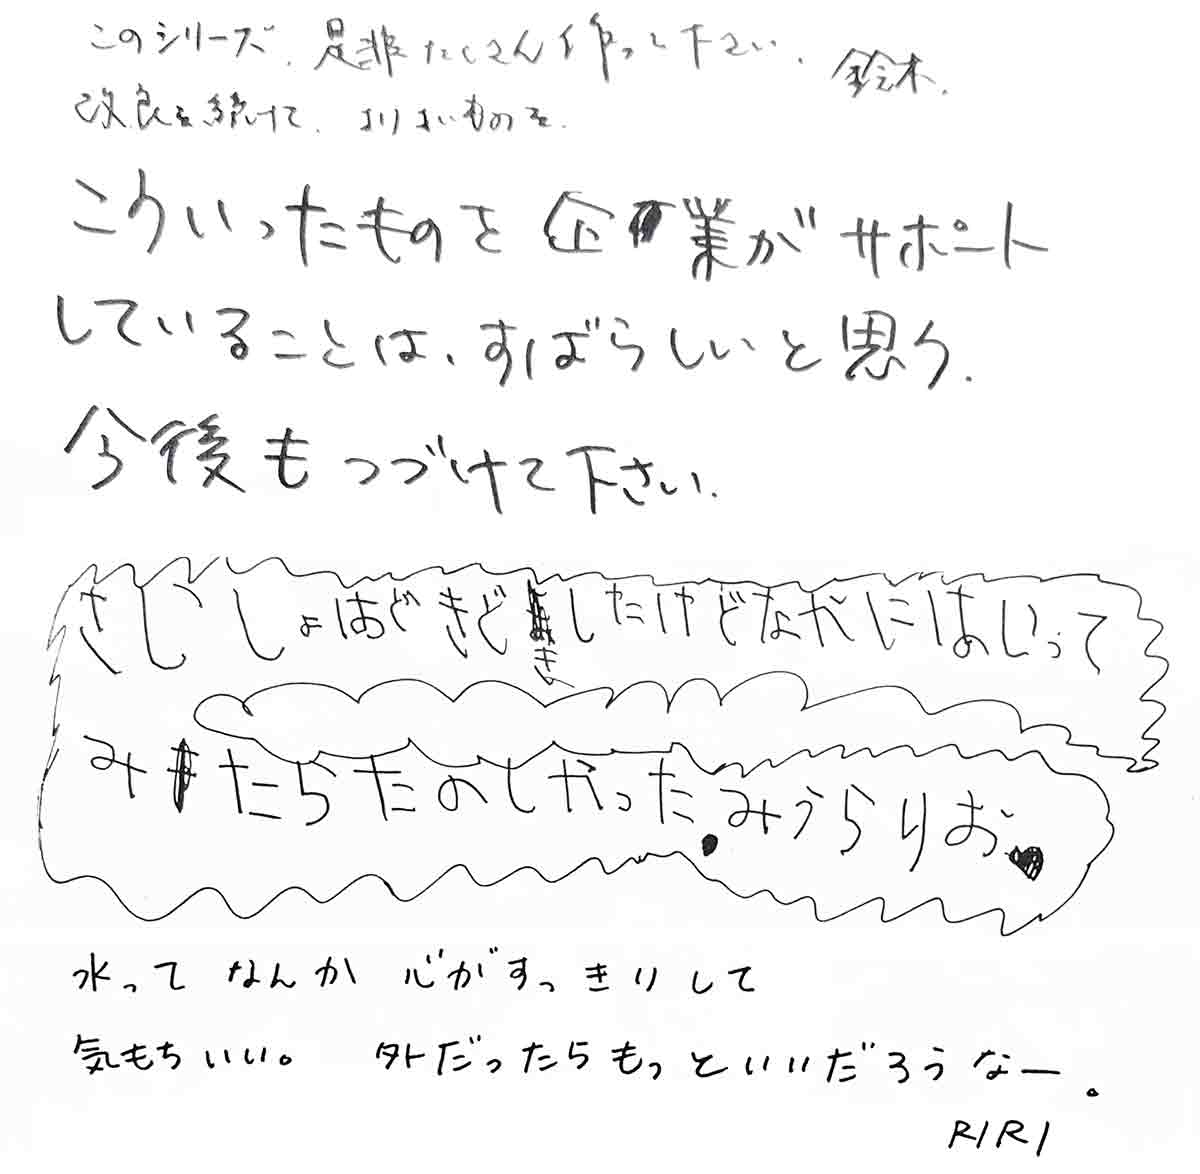 このシリーズ、是非たくさん作って下さい、鈴木.
改良を続けて、よりよいものを.
こういったものを企業がサポート
していることは、すばらしいと思う.
今後もつづけて下さい.
さじしょはどきどきしたけどなかにはいって
みたらたのしかった.みうらりお♥
水ってなんか 心がすっきりして
気もちいい。 外だったらもっといいだろうなー。
RIRI